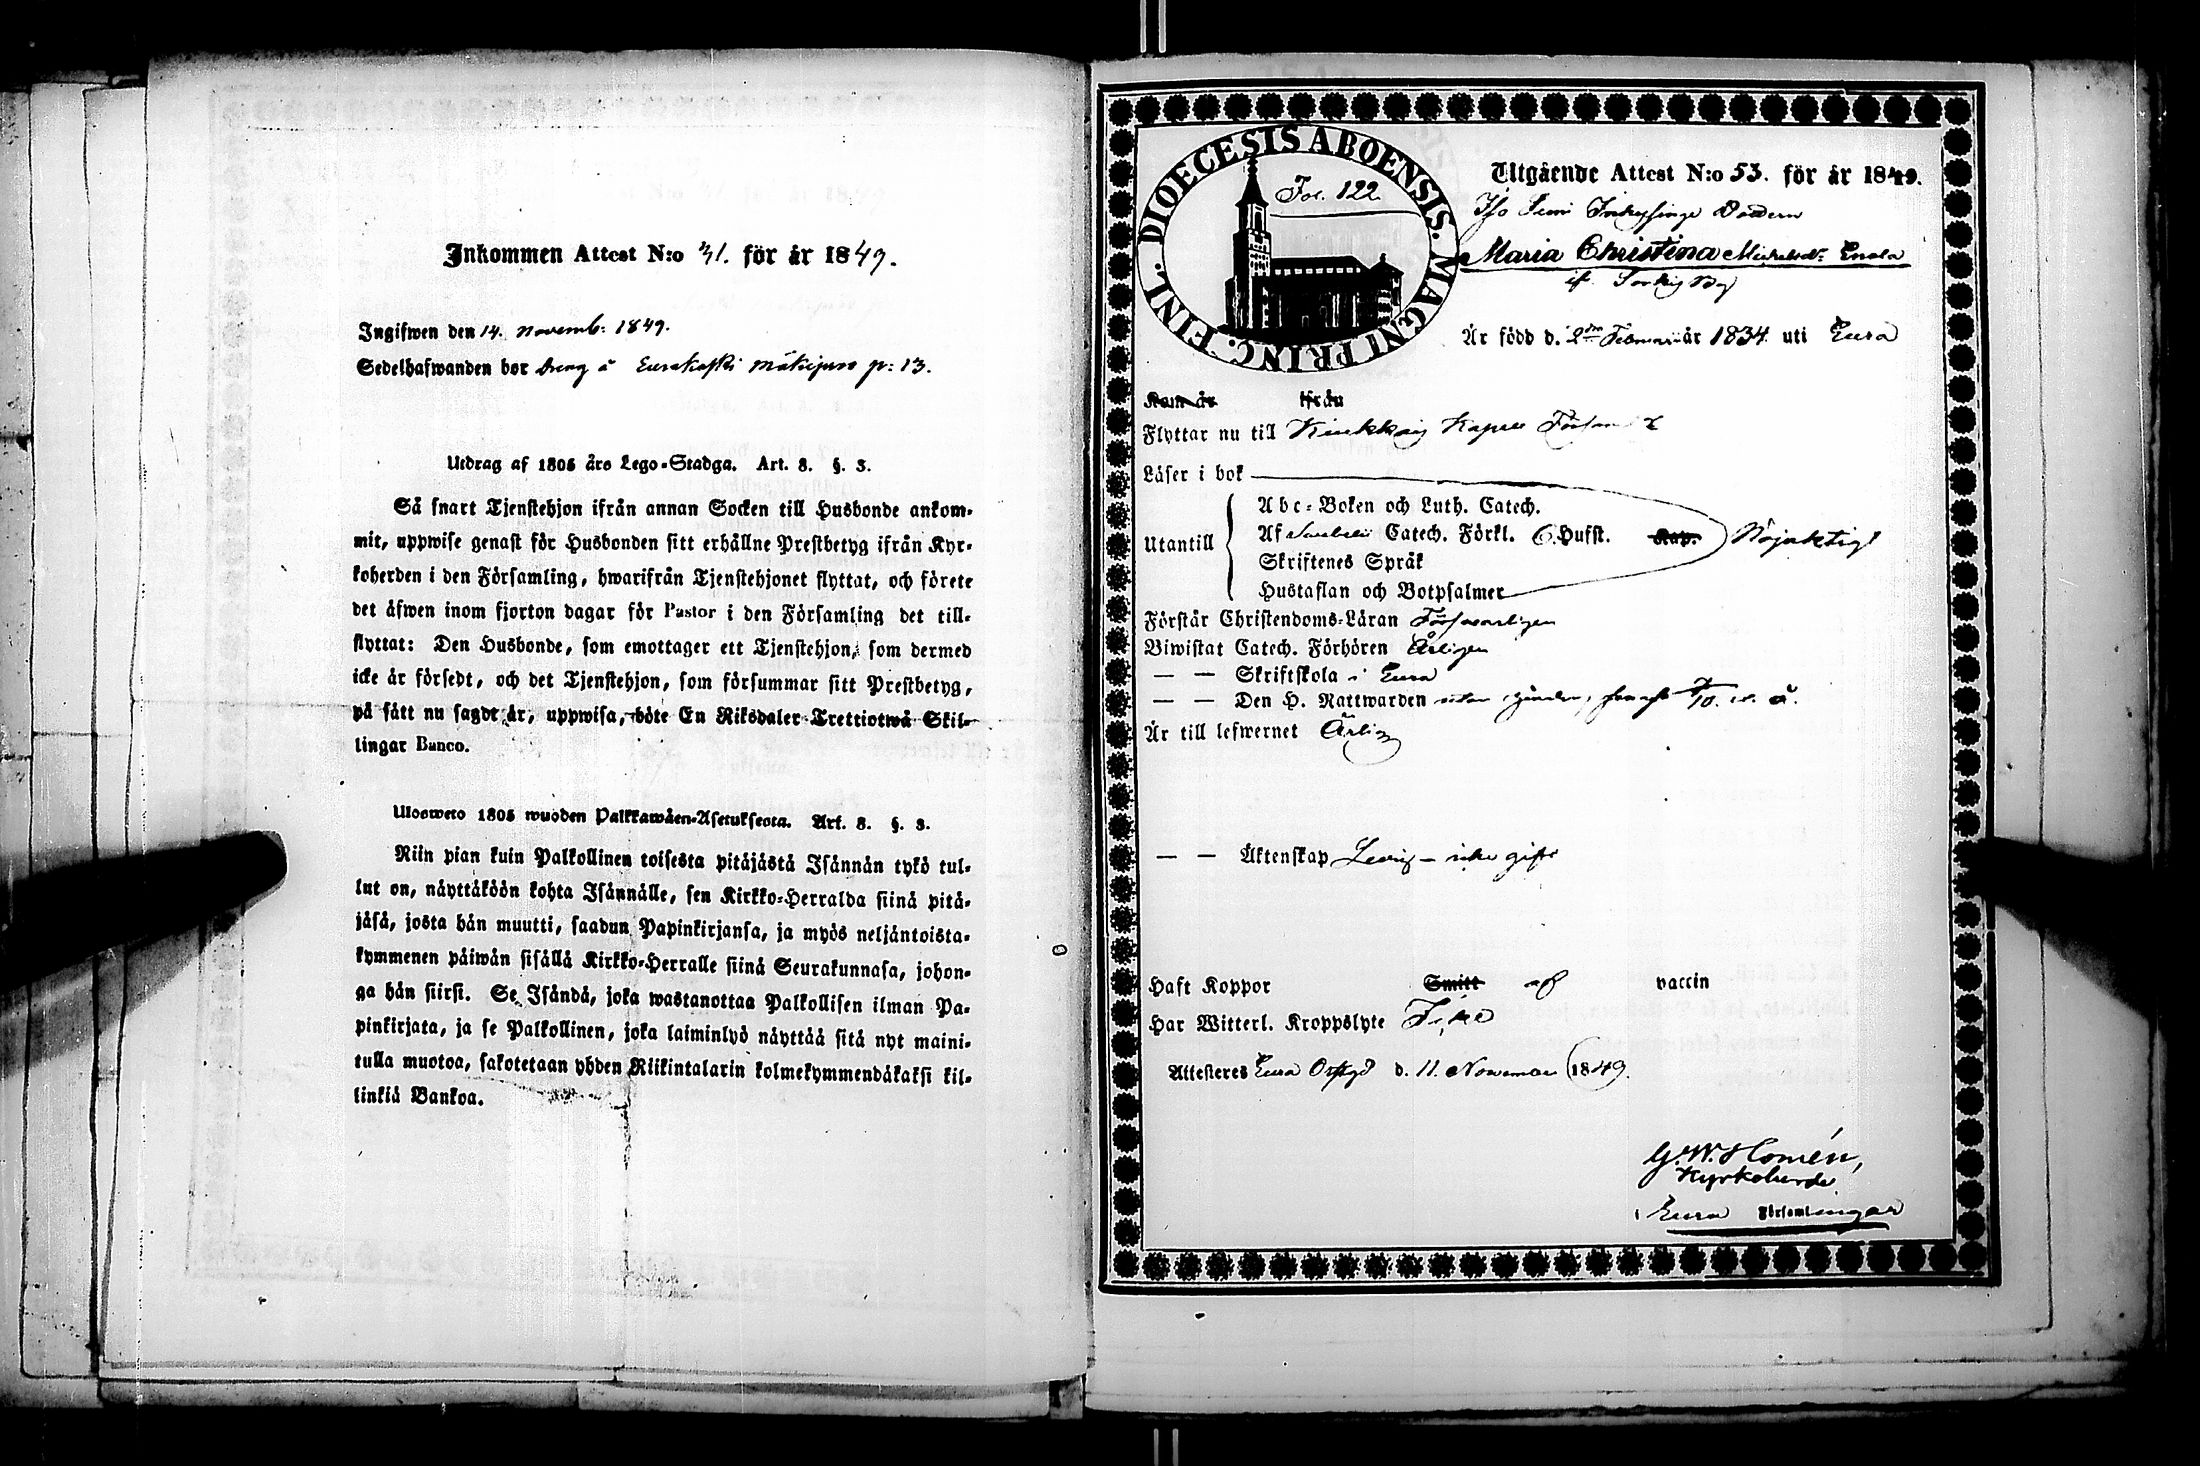 Inkommen Attest N:o 31. för år 1849.
Ingifwen den 14. Novemb: 1849.
Sedelhafwanden bor dreng å Eurakoski Mäkipura p: 13.
Utdrag af 1805 års Lego-Stadga. Art. 8. §. 3.
Så snart Tjenstehjon ifrån annan Socken till Husbonde ankom-
mit, uppwise genast för Husbonden sitt erhållne Prestbetyg ifrån Kyr-
koherden i den Församling, hwarifrån Tjenstehjonet flyttat, och förete
det äfwen inom fjorton dagar för Pastor i den Församling det till-
flyttat: Den Husbonde, som emottager ett Tjenstehjon, som dermed
icke är försedt, och det Tjenstehjon, som försummar sitt Prestbetyg,
på sätt nu sagdt är, uppwisa, böte En Riksdaler Trettiotwå Skil-
lingar Banco.
Ulosweto 1805 wuoden Palkkawäen-Asetuksesta. Art. 8. §. 3.
Niin pian kuin Palkollinen toisesta pitäjästä Isännän tykö tul-
lut on, näyttäköön kohta Isännälle, sen Kirkko-Herralda siinä pitä-
jäsä, josta hän muutti, saadun Papinkirjansa, ja myös neljäntoista-
kymmenen päiwän sisällä Kirkko-Herralle siinä Seurakunnasa, johon-
ga hän siirsi. Se Isändä, joka wastanottaa Palkollisen ilman Pa-
pinkirjata, ja se Palkollinen, joka laiminlyö näyttää sitä nyt maini-
tulla muotoa, sakotetaan yhden Riikintalarin kolmekymmendäkaksi kil-
linkiä Bankoa.
DIOECESIS ABOENSIS. MAGNI PRINC. FINL.
Fol. 122
Utgående Attest N:o 53. för år 1849.
Maria Christina Michelsdr
Är född d. 2dn Februari år 1834 uti Eura
Kom år ifrån
Flyttar nu till Kapell
Läser i bok
Utantill
Abc-Boken och Luth. Catech.
Af Swebelii Catech. Förkl. 6. Hufst. Kap. Nöjaktigt
Skriftenes Språk
Hustaflan och Botpsalmer
Förstår Christendoms-Läran Försvarligen
Biwistat Catech. Förhören Årligen
— — Skriftskola i Eura
— — Den H. Nattwarden
Är till lefwernet Ärlig
— — Äktenskap Ledig – icke gift
Haft Koppor Smitt af vaccin
Har Witterl. Kroppslyte Icke
Attesteres Eura d. 11. November 1849.
G. W. Homén,
Kyrkoherde
i Eura Församlingar